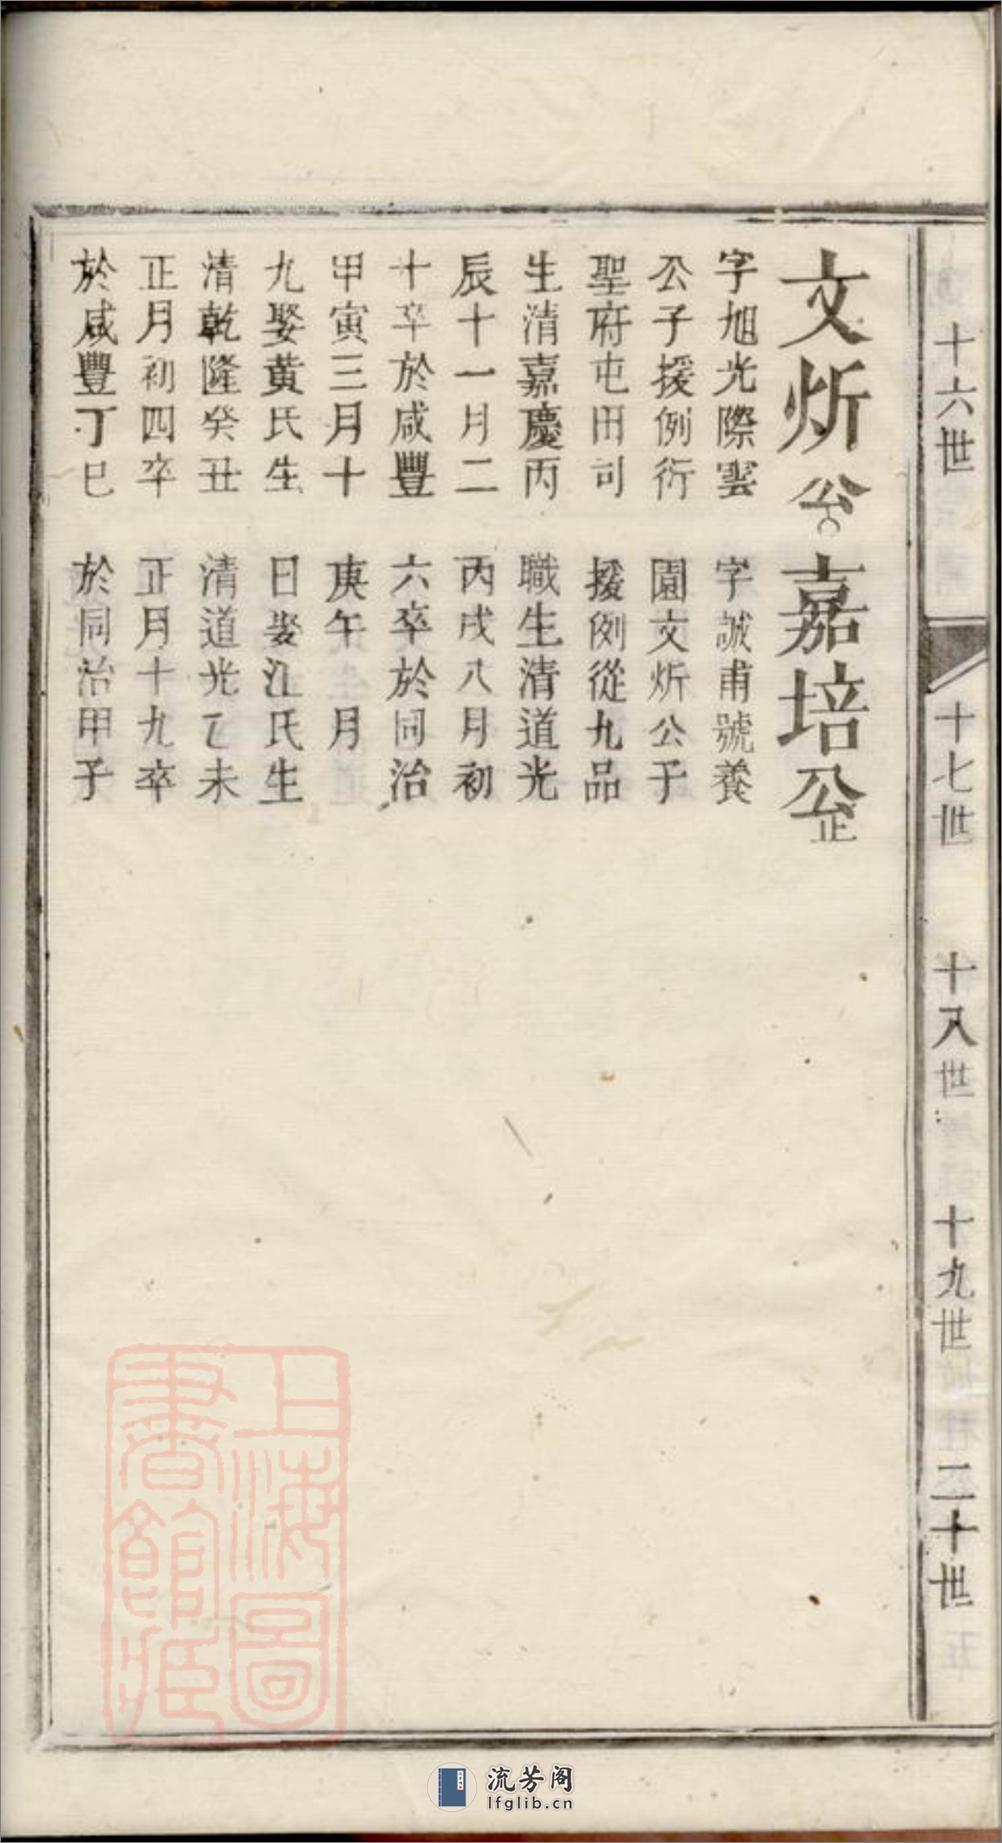 十六世
十七世
十八世
十九世
二十世
文炘公
字旭光際雲
公子援例衍
聖府屯田司
生清嘉慶丙
辰十一月二
十卒於咸豐
甲寅三月十
九娶黄氏生
清乾隆癸丑
正月初四卒
於咸豐丁巳
嘉培公正
字誠甫號養
園文炘公子
援例從九品
職生清道光
丙戌八月初
六卒於同治
庚午月
日娶江氏生
清道光乙未
正月十九卒
於同治甲子
上海圖
書館藏
流芳阁
lfglib.cn